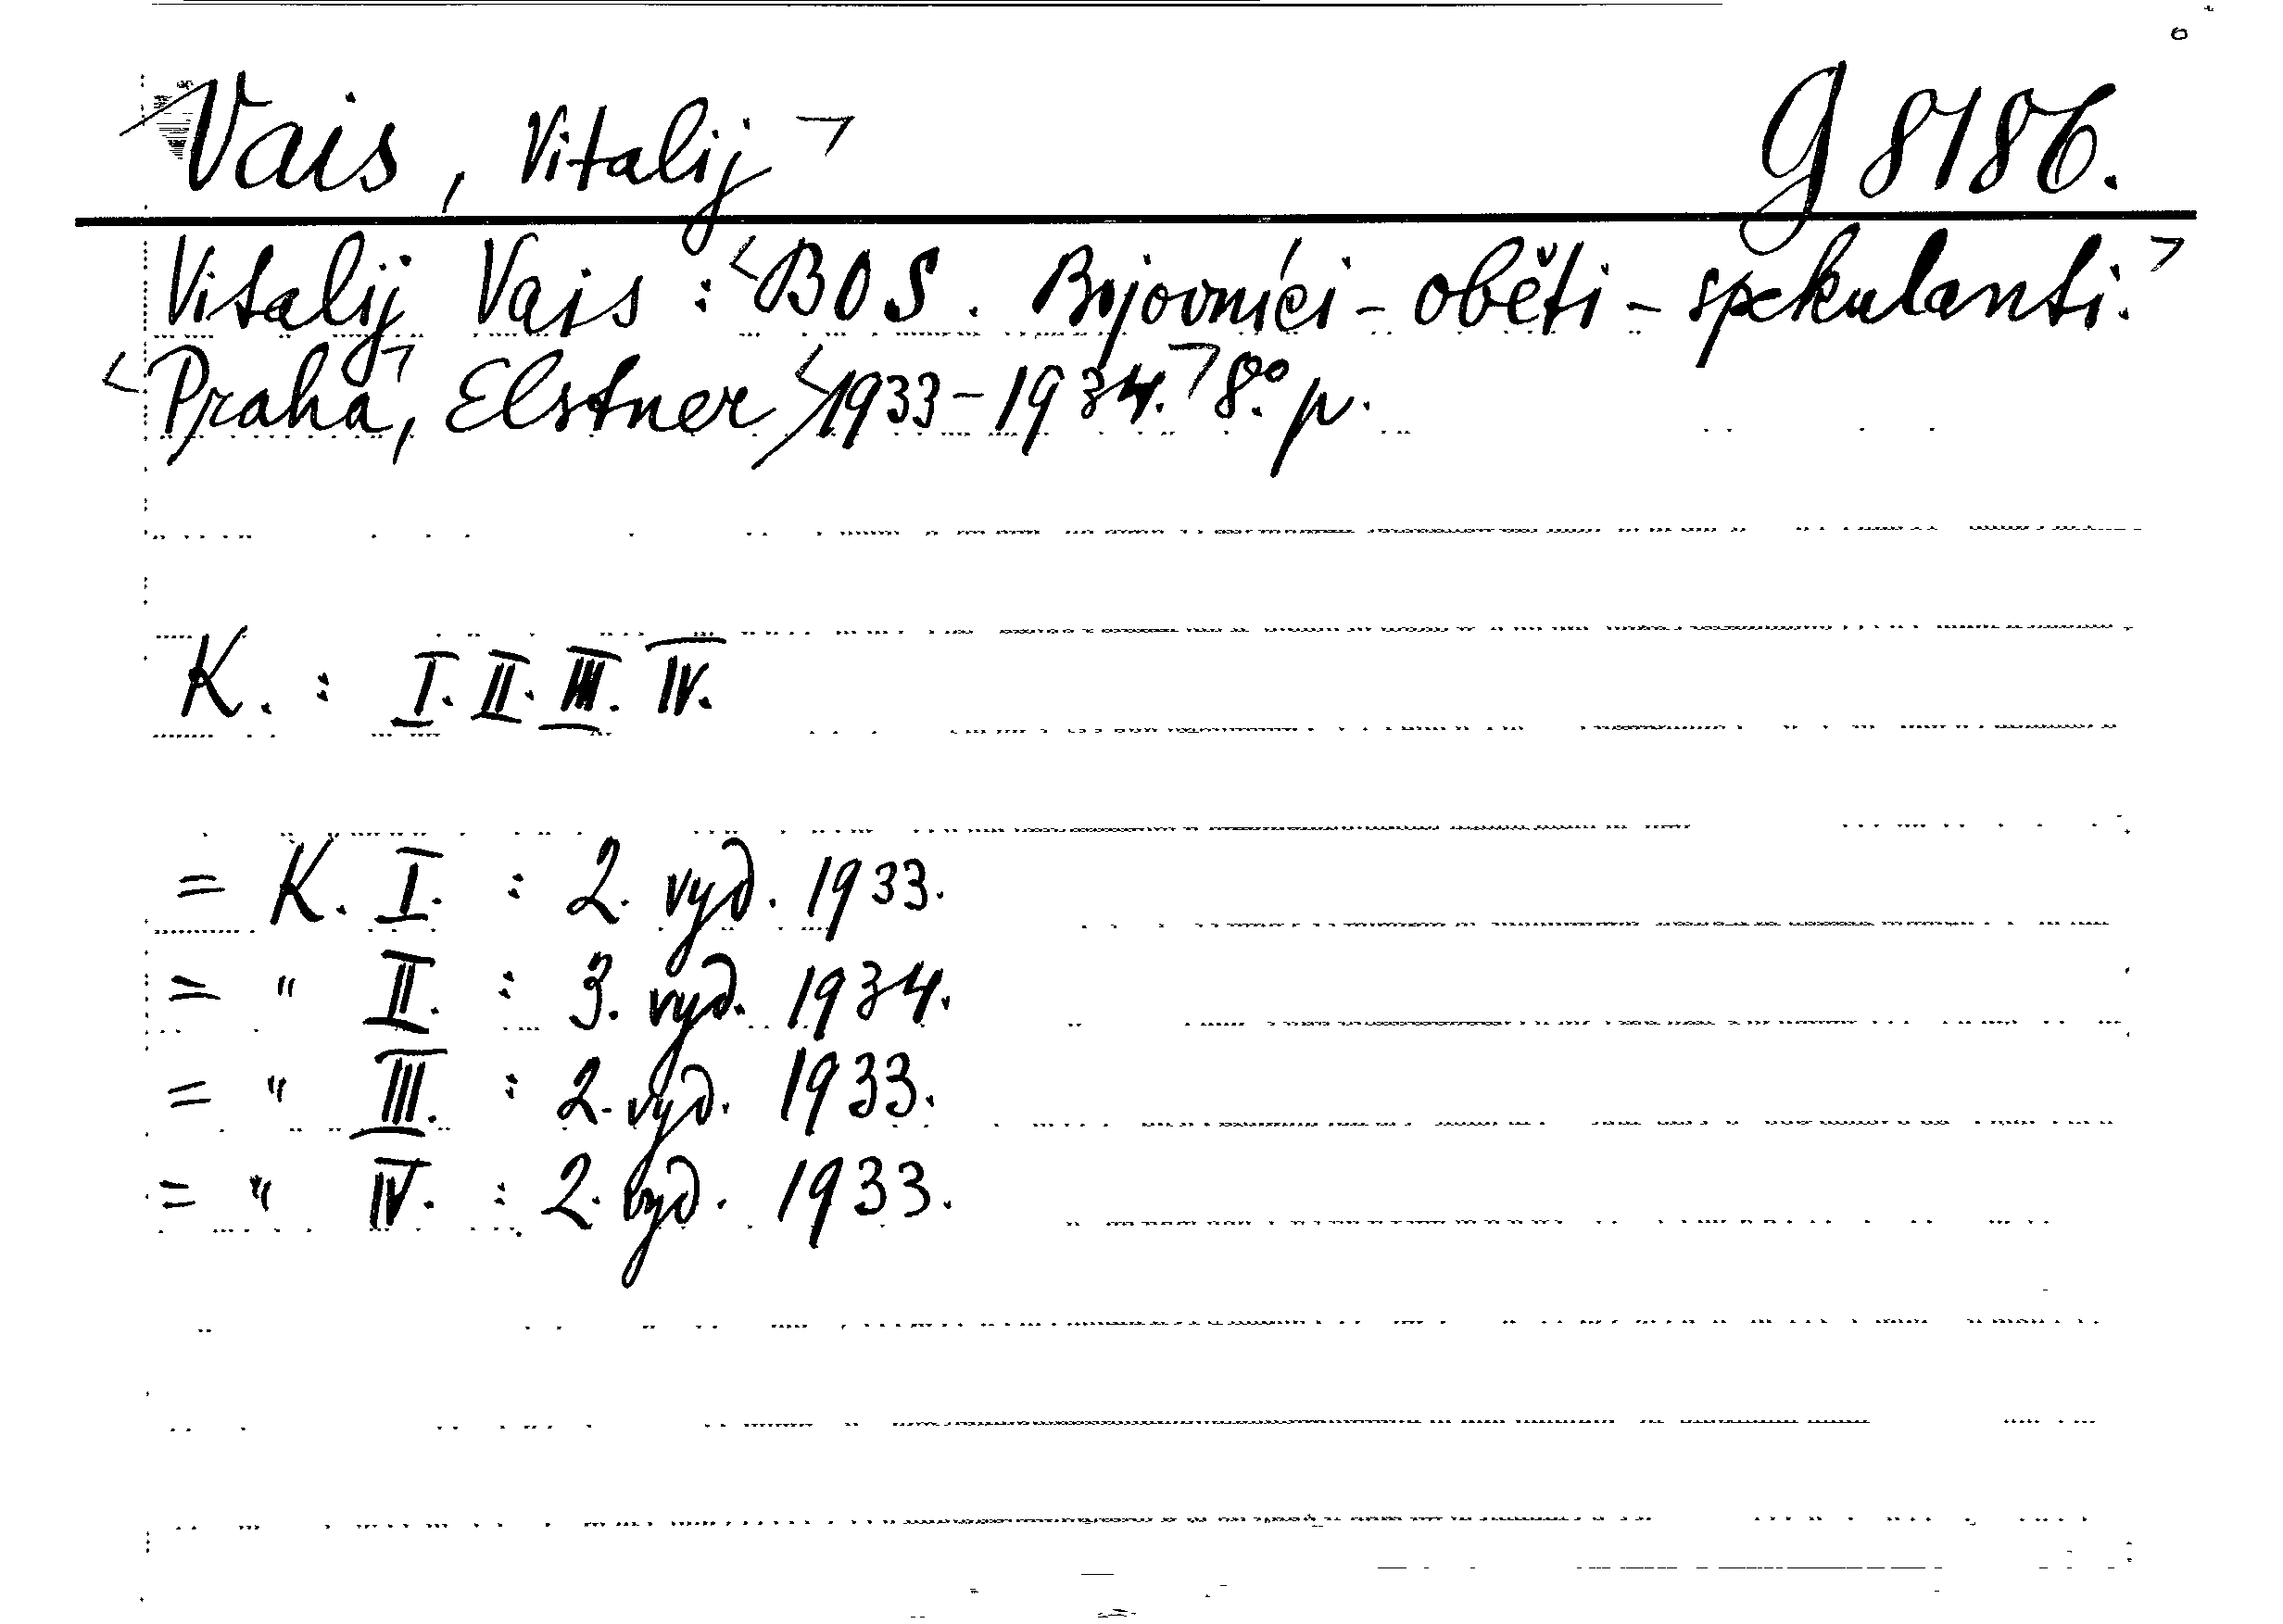 Vais, Vitalij G 8186.
Vitalij Vais: BOS. Bojovníci - oběti - spekulanti.
Praha, Elstner 1933-1934. 8.° p.
K.: I. II. III. IV.
= K. I. : 2. vyd. 1933.
= " II. : 3. vyd. 1934.
= " III. : 2. vyd. 1933.
= " IV. : 2. vyd. 1933.